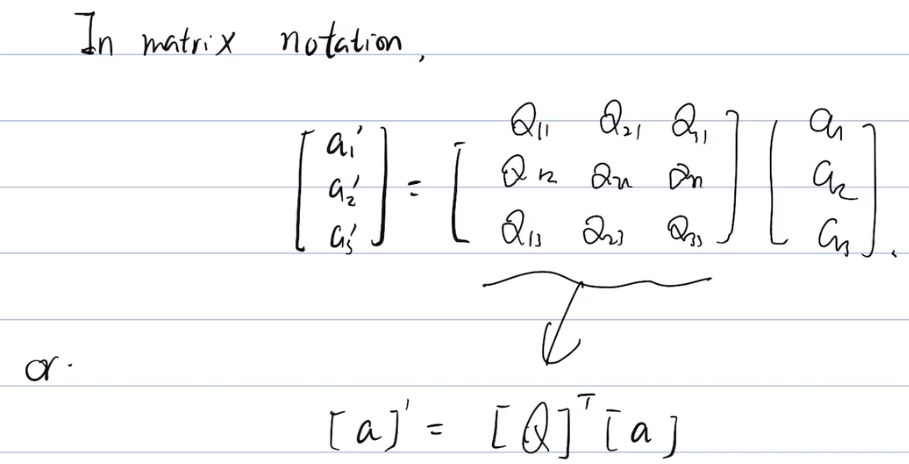 In matrix notation,
[a₁′ a₂′ a₃′] = [Q₁₁ Q₂₁ Q₃₁; Q₁₂ Q₂₂ Q₃₂; Q₁₃ Q₂₃ Q₃₃] [a₁ a₂ a₃].
or.
[a]′ = [Q]ᵀ [a]